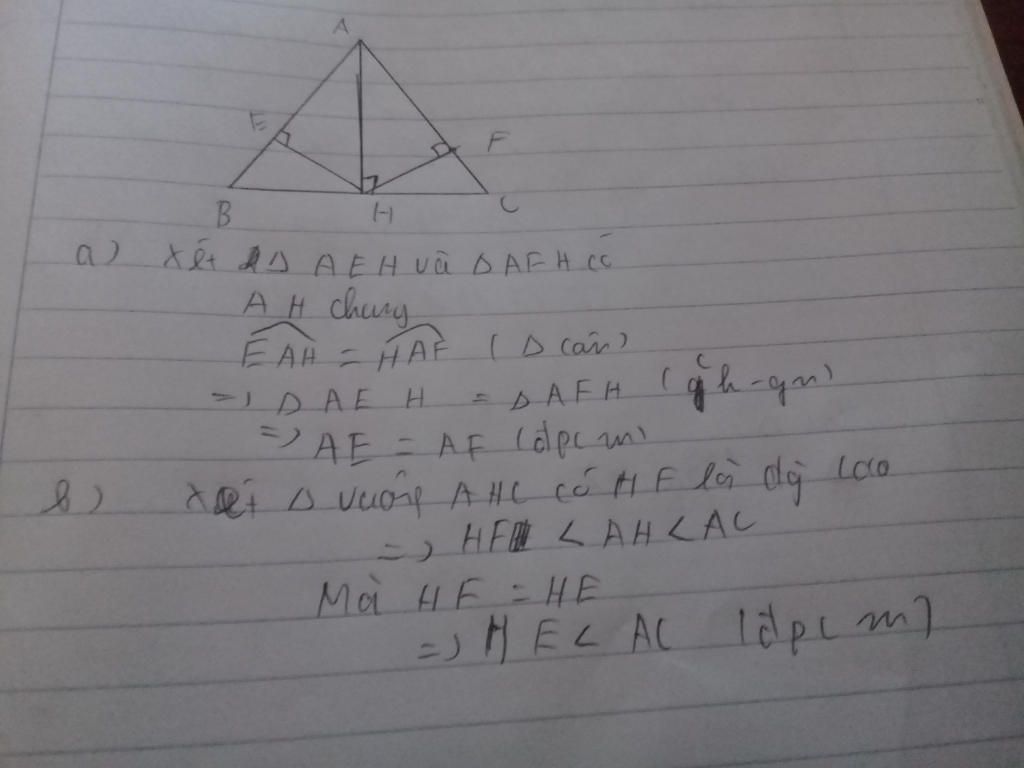 A
E
F
B
H
C
a) Xét Δ AEH và Δ AFH có
AH chung
EAH = HAF (Δ cân)
=> Δ AEH = Δ AFH (ch-gn)
=> AE = AF (đpcm)
b) Xét Δ vuông AHC có HF là đg cao
=> HF < AH < AC
Mà HF = HE
=> HE < AC (đpcm)